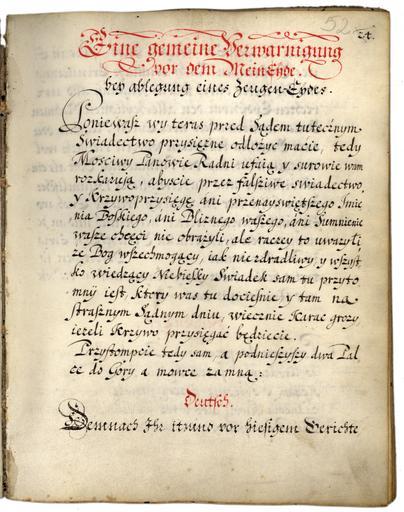 52
24.
Eine gemeine Verwarnigung
vor dem MeinEyde
bey ablegung eines Zeugen Eydes.
Poniewasz wy teras przed Sądem tutecznym
Swiadectwo przysięzne odłozyc macie, tedy
Mosciwy Panowie Radni ufaią y surowie wam
rozkazuią, abyscie przez falsziwe swiadectwo
y Krzywoprzysięgę ani przenayswiętszego Imie
nia Boskiego, ani Blizniego waszego, ani Sumnienie
wasze chęci nie obrázyli, ale raczey to uwazyli
ze Bog wszechmogący, iak niezdradliwy y wszyst
ko wiedzący Niebieski Swiadek sam tu przyto
mny iest, Ktory was tu docieśnie y tam na
strasznym Sądnym dniu, wiecznie Karac grozy
iezeli Krzywo przysięgac będziecie.
Przystompcie tedy sam a podnieszyszy dwa Pal
ce do Gory a mowce za mną:
Deutsch.
Demnach Ihr itzund vor hiesigem Gerichte